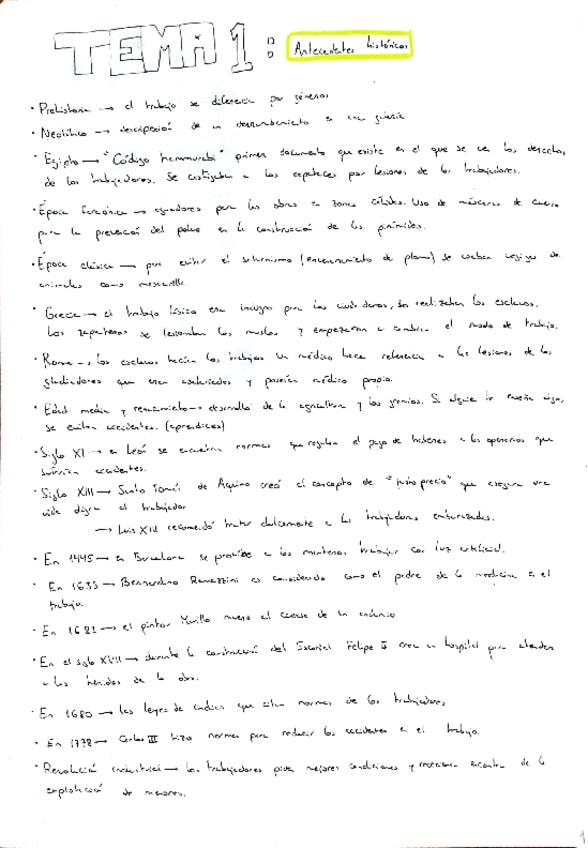 TEMA 1: Antecedentes históricos
· Prehistoria → el trabajo se diferencia por géneros
· Neolítico → descripción de un derrumbamiento en una galería
· Egipto → "Código hammurabi" primer documento que existe en el que se ve los derechos
de los trabajadores. Se castigaba a los capataces por lesiones de los trabajadores.
· Época faraónica → para las obras en zonas cálidas. Uso de máscaras de
para la prevención del polvo en la construcción de las pirámides.
· Época clásica → para evitar el saturnismo (envenenamiento de plomo) se usaban vejigas de
animales como mascarilla
· Grecia → el trabajo físico era indigno para los ciudadanos, lo realizaban los esclavos.
Los zapateros se lesionaban los muslos y empezaron a cambiar el modo de trabajo.
· Roma → los esclavos hacían los trabajos. Un médico hace referencia a las lesiones de los
gladiadores que eran esclavizados y poseían médico propio.
· Edad media y renacimiento → desarrollo de la agricultura y los gremios. Si alguien te enseña algo,
se evitan accidentes. (aprendices)
· Siglo XI → en León se encuentran normas que regulan el pago de haberes a los operarios que
sufrían accidentes.
· Siglo XIII → Santo Tomás de Aquino creó el concepto de "justo precio" que asegura una
vida digna al trabajador
→ Luis XIII recomendó tratar dulcemente a las trabajadoras embarazadas.
· En 1445 → en Barcelona se prohíbe a los trabajar con luz artificial.
· En 1633 → Bernardino Ramazzini es considerado como el padre de la medicina en el
trabajo.
· En 1682 → el pintor Murillo muere al caerse de un andamio
· En el siglo XVII → durante la construcción del Escorial Felipe II crea un hospital para atender
a los heridos de la obra.
· En 1680 → las leyes de indias que normas de los trabajadores
· En 1778 → Carlos III hizo normas para reducir los accidentes en el trabajo.
· Revolución industrial → los trabajadores piden mejores condiciones y en contra de la
explotación de menores.
1